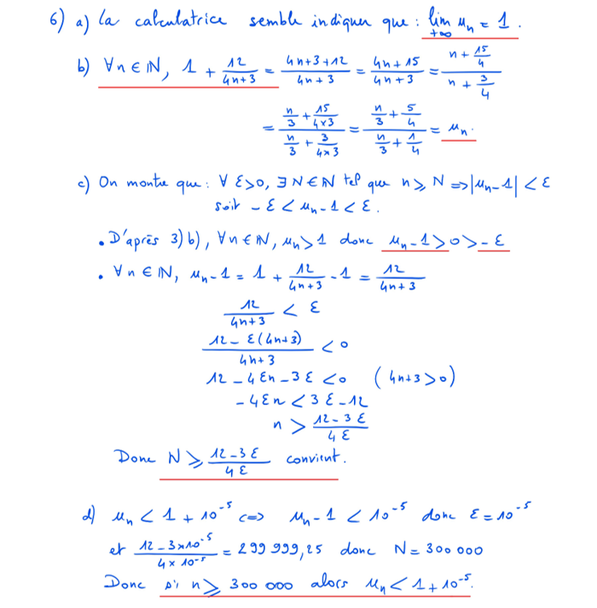 6) a) La calculatrice semble indiquer que : lim uₙ = 1.
+∞
b) ∀n ∈ ℕ, 1 + 12/(4n+3) = (4n+3+12)/(4n+3) = (4n+15)/(4n+3) = (n + 15/4)/(n + 3/4)
= (n/3 + 15/(4×3))/(n/3 + 3/(4×3)) = (n/3 + 5/4)/(n/3 + 1/4) = uₙ.
c) On montre que : ∀ ε>0, ∃ N ∈ ℕ tel que n ⩾ N ⇒ |uₙ-1| < ε
soit - ε < uₙ - 1 < ε.
• D'après 3) b), ∀n ∈ ℕ, uₙ > 1 donc uₙ - 1 > 0 > - ε
• ∀n ∈ ℕ, uₙ - 1 = 1 + 12/(4n+3) - 1 = 12/(4n+3)
12/(4n+3) < ε
(12 - ε(4n+3))/(4n+3) < 0
12 - 4εn - 3ε < 0 (4n+3 > 0)
- 4εn < 3ε - 12
n > (12 - 3ε)/(4ε)
Donc N ⩾ (12-3ε)/(4ε) convient.
d) uₙ < 1 + 10⁻⁵ ⇔ uₙ - 1 < 10⁻⁵ donc ε = 10⁻⁵
et (12 - 3×10⁻⁵)/(4 × 10⁻⁵) = 299 999,25 donc N = 300 000
Donc si n ⩾ 300 000 alors uₙ < 1 + 10⁻⁵.